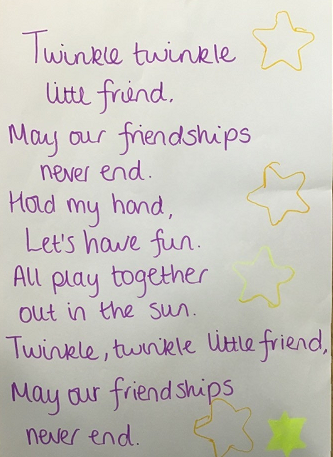 Twinkle twinkle
little friend.
May our friendships
never end.
Hold my hand,
Let's have fun.
All play together
out in the sun.
Twinkle, twinkle little friend,
May our friendships
never end.